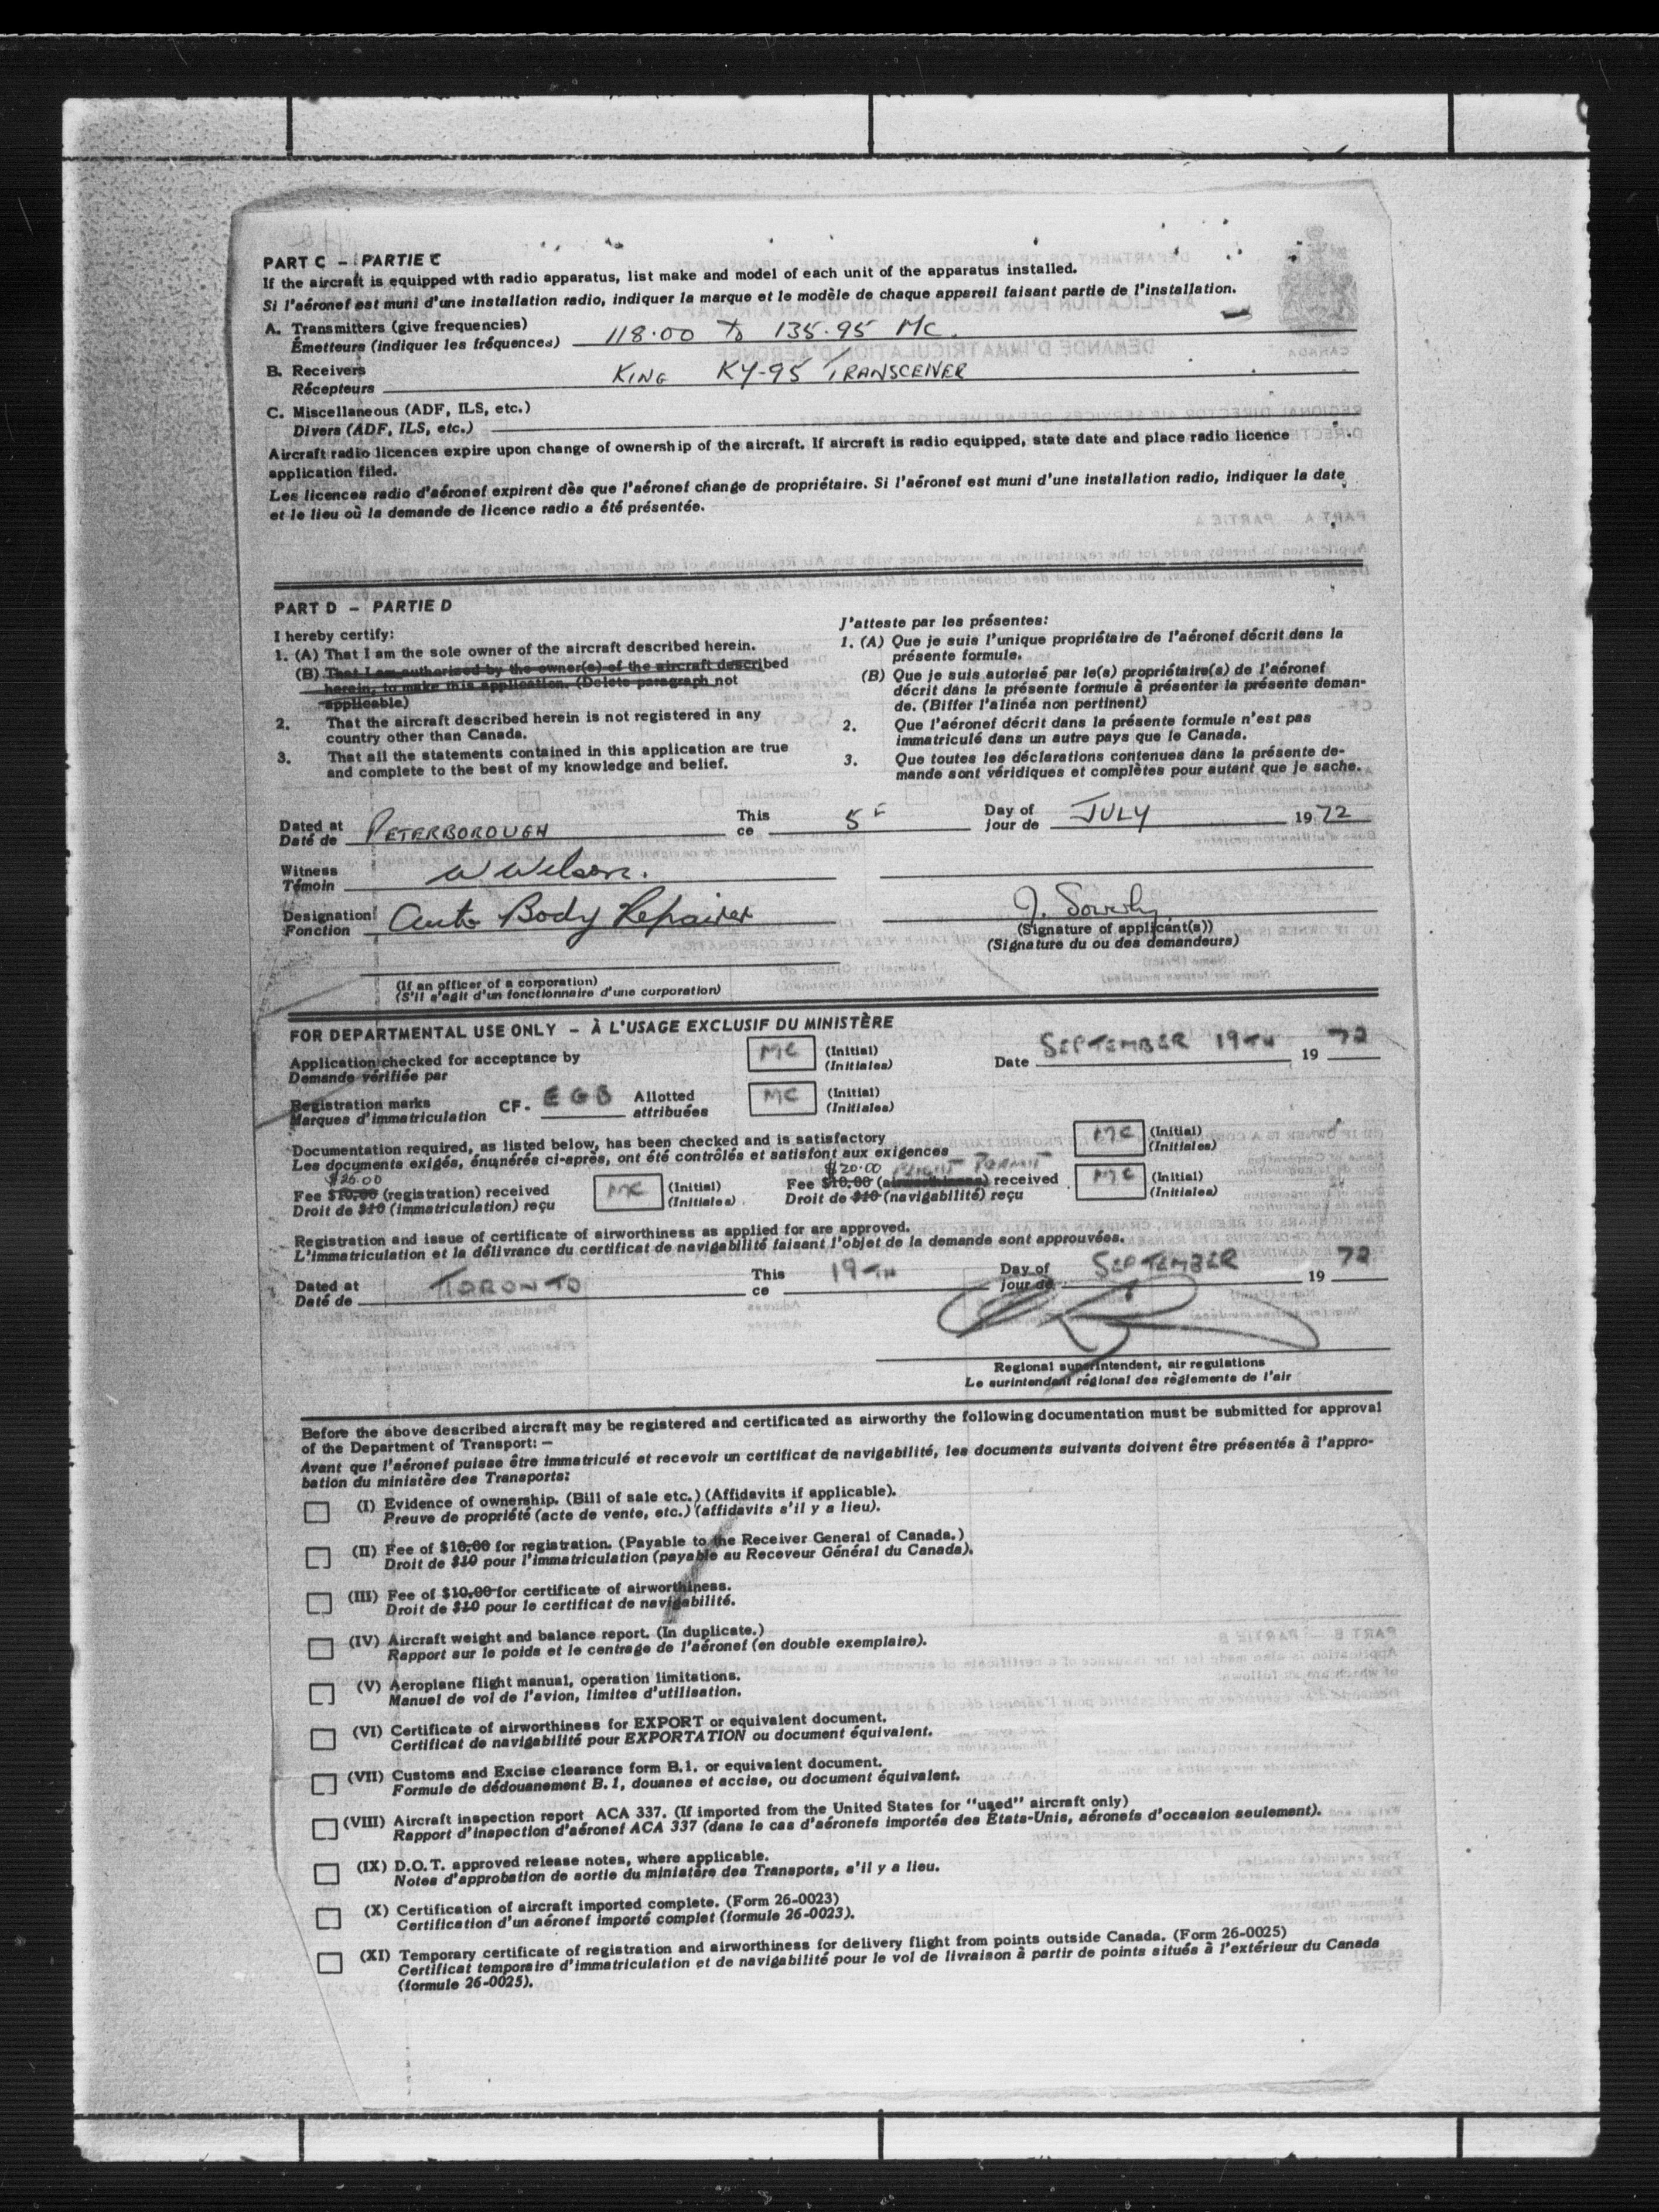 PART C – PARTIE C
If the aircraft is equipped with radio apparatus, list make and model of each unit of the apparatus installed.
Si l'aéronef est muni d'une installation radio, indiquer la marque et le modèle de chaque appareil faisant partie de l'installation.
A. Transmitters (give frequencies)
Émetteurs (indiquer les fréquences) 118.00 to 135.95 MC.
B. Receivers
Récepteurs KING KY-95 TRANSCEIVER
C. Miscellaneous (ADF, ILS, etc.)
Divers (ADF, ILS, etc.)
Aircraft radio licences expire upon change of ownership of the aircraft. If aircraft is radio equipped, state date and place radio licence
application filed.
Les licences radio d'aéronef expirent dès que l'aéronef change de propriétaire. Si l'aéronef est muni d'une installation radio, indiquer la date
et le lieu où la demande de licence radio a été présentée.
PART D – PARTIE D
I hereby certify:
1. (A) That I am the sole owner of the aircraft described herein.
(B) That I am authorized by the owner(s) of the aircraft described
herein, to make this application. (Delete paragraph not
applicable)
2. That the aircraft described herein is not registered in any
country other than Canada.
3. That all the statements contained in this application are true
and complete to the best of my knowledge and belief.
J'atteste par les présentes:
1. (A) Que je suis l'unique propriétaire de l'aéronef décrit dans la
présente formule.
(B) Que je suis autorisé par le(s) propriétaire(s) de l'aéronef
décrit dans la présente formule à présenter la présente deman-
de. (Biffer l'alinéa non pertinent)
2. Que l'aéronef décrit dans la présente formule n'est pas
immatriculé dans un autre pays que le Canada.
3. Que toutes les déclarations contenues dans la présente de-
mande sont véridiques et complètes pour autant que je sache.
Dated at This Day of
Daté de PETERBOROUGH ce 5 jour de JULY 19 72
Witness
Témoin W Wilson.
Designation
Fonction Auto Body Repairer
(Signature of applicant(s))
(Signature du ou des demandeurs)
(If an officer of a corporation)
(S'il s'agit d'un fonctionnaire d'une corporation)
FOR DEPARTMENTAL USE ONLY – À L'USAGE EXCLUSIF DU MINISTÈRE
Application checked for acceptance by MC (Initial) Date SEPTEMBER 19TH 19 72
Demande vérifiée par (Initiales)
Registration marks CF- EGB Allotted MC (Initial)
Marques d'immatriculation attribuées (Initiales)
Documentation required, as listed below, has been checked and is satisfactory MC (Initial)
Les documents exigés, énumérés ci-après, ont été contrôlés et satisfont aux exigences (Initiales)
$20.00 $20.00 FLIGHT PERMIT
Fee $10.00 (registration) received MC (Initial) Fee $10.00 (airworthiness) received MC (Initial)
Droit de $10 (immatriculation) reçu (Initiales) Droit de $10 (navigabilité) reçu (Initiales)
Registration and issue of certificate of airworthiness as applied for are approved.
L'immatriculation et la délivrance du certificat de navigabilité faisant l'objet de la demande sont approuvées.
Dated at This Day of
Daté de TORONTO ce 19TH jour de SEPTEMBER 19 72
Regional superintendent, air regulations
Le surintendant régional des règlements de l'air
Before the above described aircraft may be registered and certificated as airworthy the following documentation must be submitted for approval
of the Department of Transport: –
Avant que l'aéronef puisse être immatriculé et recevoir un certificat de navigabilité, les documents suivants doivent être présentés à l'appro-
bation du ministère des Transports:
(I) Evidence of ownership. (Bill of sale etc.) (Affidavits if applicable).
Preuve de propriété (acte de vente, etc.) (affidavits s'il y a lieu).
(II) Fee of $10.00 for registration. (Payable to the Receiver General of Canada.)
Droit de $10 pour l'immatriculation (payable au Receveur Général du Canada).
(III) Fee of $10.00 for certificate of airworthiness.
Droit de $10 pour le certificat de navigabilité.
(IV) Aircraft weight and balance report. (In duplicate.)
Rapport sur le poids et le centrage de l'aéronef (en double exemplaire).
(V) Aeroplane flight manual, operation limitations.
Manuel de vol de l'avion, limites d'utilisation.
(VI) Certificate of airworthiness for EXPORT or equivalent document.
Certificat de navigabilité pour EXPORTATION ou document équivalent.
(VII) Customs and Excise clearance form B.1. or equivalent document.
Formule de dédouanement B.1, douanes et accise, ou document équivalent.
(VIII) Aircraft inspection report ACA 337. (If imported from the United States for "used" aircraft only)
Rapport d'inspection d'aéronef ACA 337 (dans le cas d'aéronefs importés des États-Unis, aéronefs d'occasion seulement).
(IX) D.O.T. approved release notes, where applicable.
Notes d'approbation de sortie du ministère des Transports, s'il y a lieu.
(X) Certification of aircraft imported complete. (Form 26-0023)
Certification d'un aéronef importé complet (formule 26-0023).
(XI) Temporary certificate of registration and airworthiness for delivery flight from points outside Canada. (Form 26-0025)
Certificat temporaire d'immatriculation et de navigabilité pour le vol de livraison à partir de points situés à l'extérieur du Canada
(formule 26-0025).